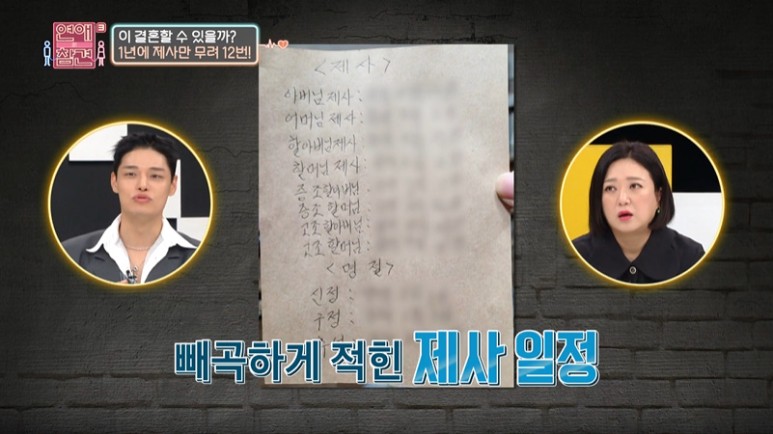 연애 3
참견
이 결혼할 수 있을까?
1년에 제사만 무려 12번!
<제사>
아버님 제사 :
어머님 제사 :
할아버님 제사
할머님 제사 :
증조할아버님 :
증조 할머님 :
고조할아버님 :
고조 할머님 :
<명 절>
신정 :
구정 :
빼곡하게 적힌 제사 일정